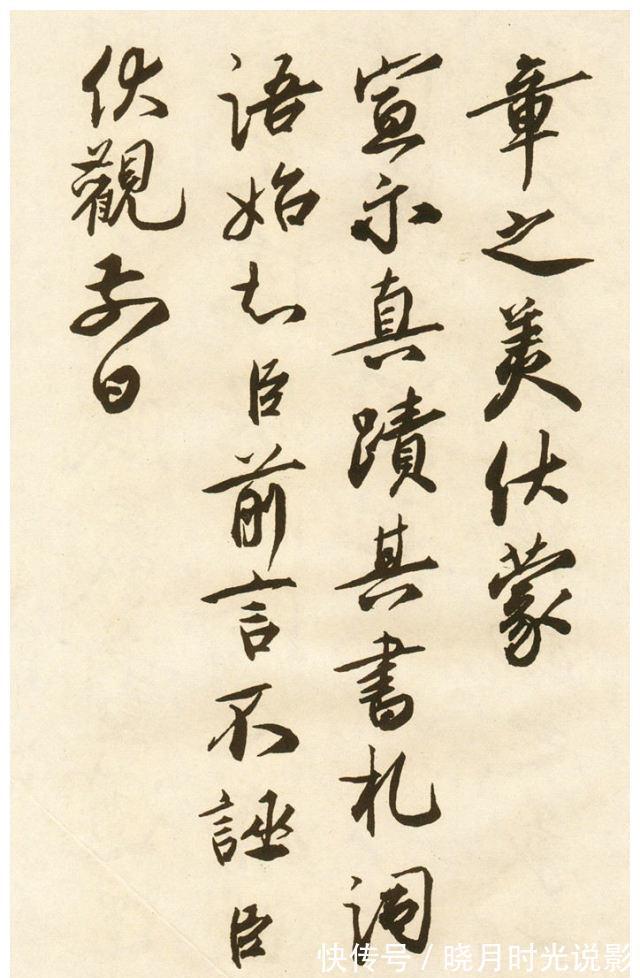 章之美伏蒙
宣示真蹟其書札詞
語始知臣前言不誣臣
伏觀前日
快传号 / 晓月时光说影